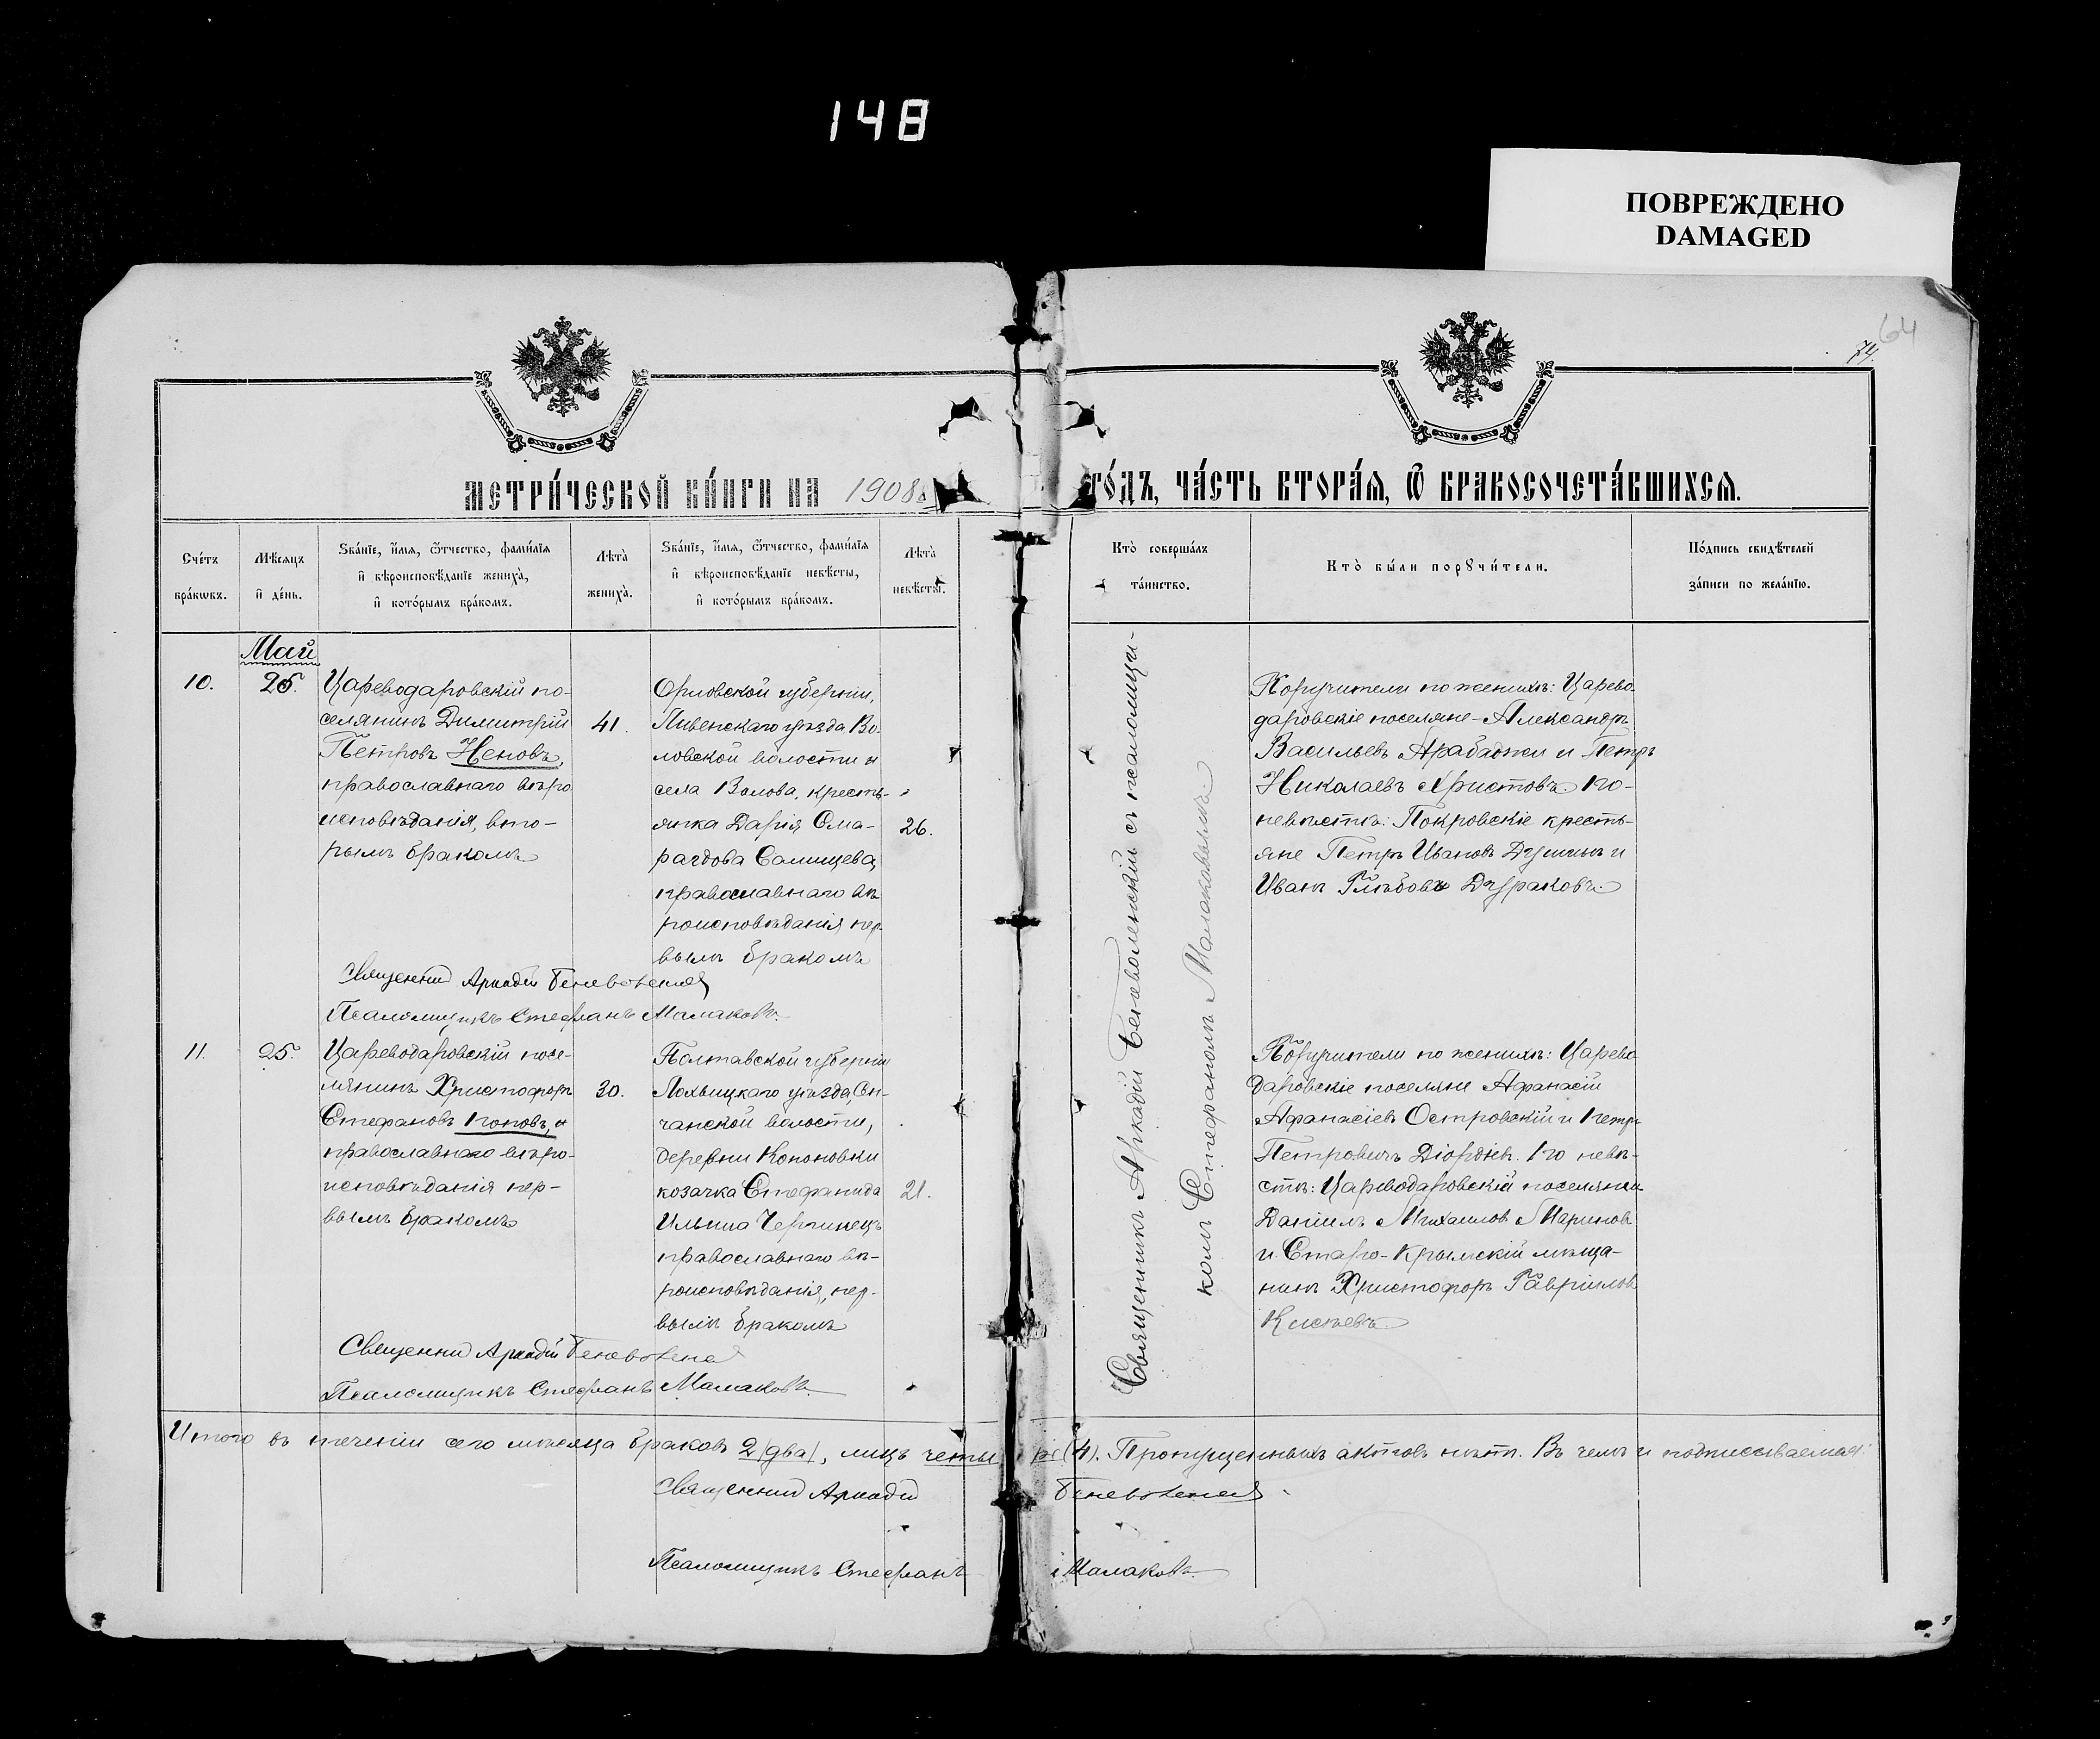 148
ПОВРЕЖДЕНО
DAMAGED
64
74.
МЕТРИ́ЧЕСКОЙ КНИ́ГИ НА 1908 ГО́ДЪ, ЧА́СТЬ ВТОРА́Я, Ѿ БРАКОСОЧЕТА́ВШИХСЯ.
Сче́тъ
бра́кѡвъ.
Мѣ́сяцъ
и҆ де́нь.
Ѕва́нїе, и҆́мя, ѻ҆́тчество, фами́лїя
и҆ вѣроисповѣ́данїе жениха̀,
и҆ кото́рымъ бра́комъ.
Лѣта̀
жениха̀.
Ѕва́нїе, и҆́мя, ѻ҆́тчество, фами́лїя
и҆ вѣроисповѣ́данїе невѣ́сты,
и҆ кото́рымъ бра́комъ.
Лѣта̀
невѣ́сты.
Кто̀ соверша́лъ
та́инство.
Кто̀ бы́ли порꙋчи́тели.
По́дпись свидѣ́телей
за́писи по жела́нїю.
Май
10.
25.
Цареводаровскій по-
селянинъ Димитрій
Петровъ Неновъ,
православнаго вѣро
исповѣданія, вто-
рымъ бракомъ
41.
Орловской губерніи,
Ливенскаго уѣзда Во-
ловской волости и
села Волова, кресть-
янка Дарія Сма-
рагдова Салищева,
православнаго вѣ
роисповѣданія пер-
вымъ бракомъ
26.
Священникъ Аркадій с псаломщи-
комъ Стефаномъ Малаковымъ
Поручители по женихѣ: Царево-
даровскіе поселяне - Александръ
Васильевъ Арабаджи и Петръ
Николаевъ Христовъ. По
невѣстѣ: Покровскіе кресть-
яне Петръ Ивановъ и
Иванъ Глѣбовъ Дураковъ.
Священник Аркадій
Псаломщикъ Стефанъ Малаковъ.
11.
25.
Цареводаровскій посе-
лянинъ Христофоръ
Стефановъ Поповъ,
православнаго вѣро-
исповѣданія пер-
вымъ бракомъ
30.
Полтавской губерніи
Лохвицкаго уѣзда, Сен-
чанской волости,
деревни Кононовки
козачка Стефанида
Ильина Чернинецъ
православнаго вѣ-
роисповѣданія, пер-
вымъ бракомъ
21.
Поручители по женихѣ: Царево
даровскіе поселяне Афанасій
Афанасіевъ Островскій и Петръ
Петровичъ Діордіевъ. По невѣ-
стѣ: Цареводаровскій поселянинъ
Даніилъ Михаиловъ Мариновъ
и Старо-Крымскій мѣща-
нинъ Христофоръ Гавріиловъ
Священник Аркадій
Псаломщикъ Стефанъ Малаковъ.
Итого въ теченіи сего мѣсяца браковъ 2 (два), лицъ четыре (4). Пропущенныхъ актовъ нѣтъ. Въ чемъ и подписываемся:
Священник Аркадій
Псаломщикъ Стефанъ Малаковъ.